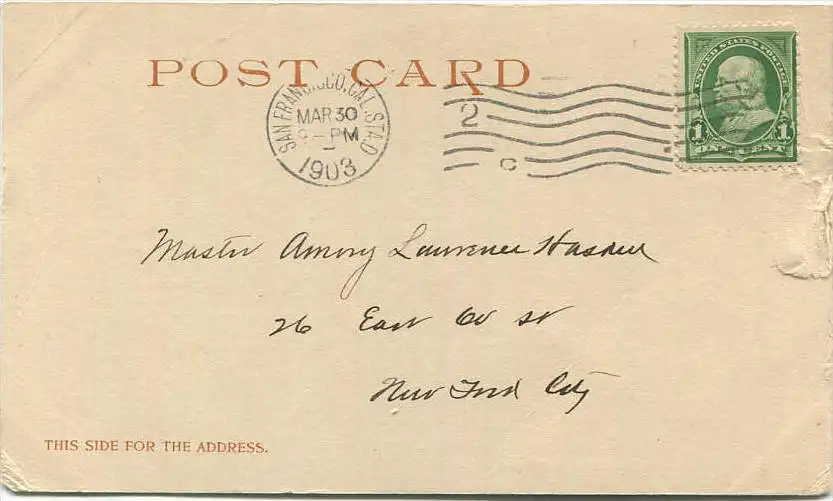 POST CARD
UNITED STATES POSTAGE
1 1
ONE CENT
SAN FRANCISCO, CAL. STA. D
MAR 30
PM
1903
2
C
Master Amory Lawrence Haskell
26 East 60 st
New York City
THIS SIDE FOR THE ADDRESS.